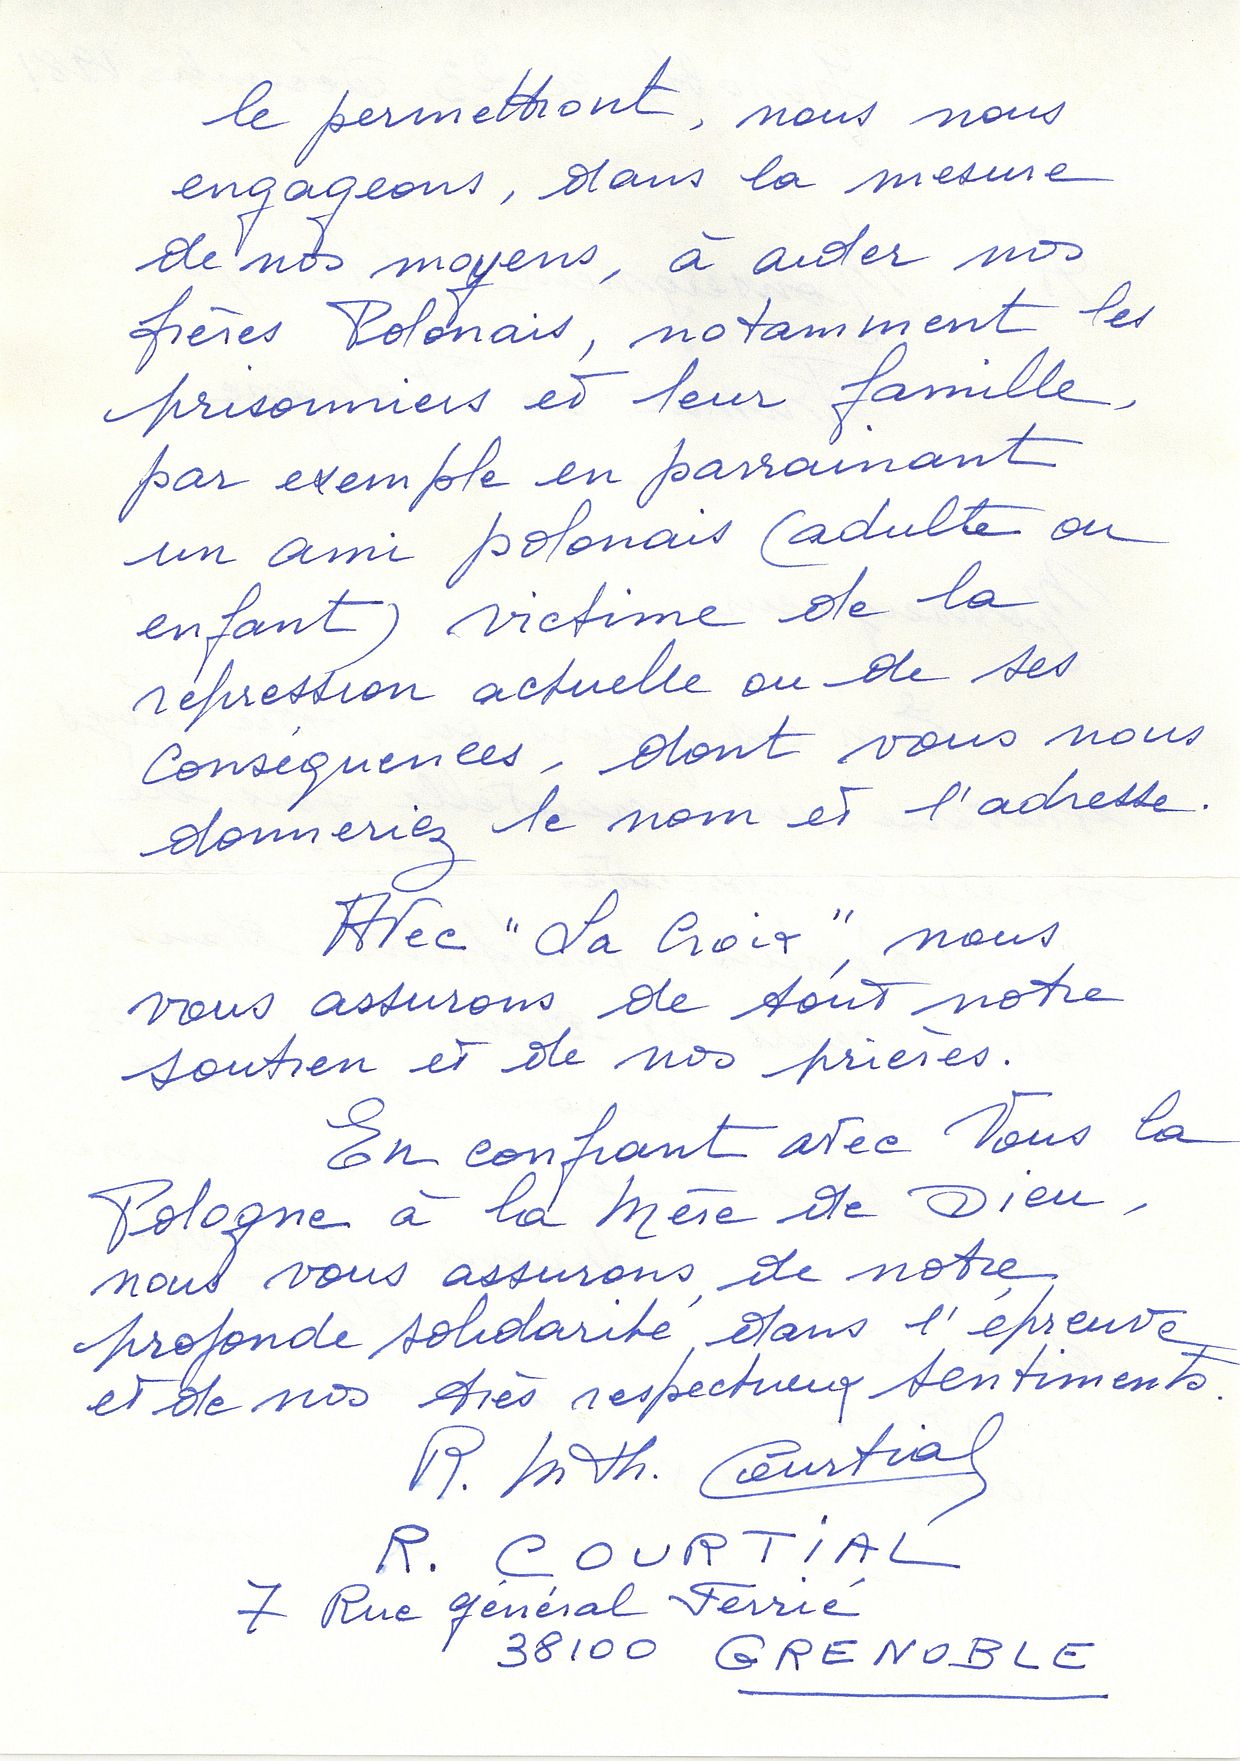 le permettront, nous nous
engageons, dans la mesure
de nos moyens, à aider nos
frères Polonais, notamment les
prisonniers et leur famille,
par exemple en parrainant
un ami polonais (adulte ou
enfant) victime de la
répression actuelle ou de ses
conséquences, dont vous nous
donneriez le nom et l'adresse.
Avec "La Croix", nous
vous assurons de tout notre
soutien et de nos prières.
En confiant avec Vous la
Pologne à la Mère de Dieu,
nous vous assurons de notre
profonde solidarité dans l'épreuve
et de nos très respectueux sentiments.
R. M Th. Courtial
R. COURTIAL
7 Rue général Ferrié
38100 GRENOBLE